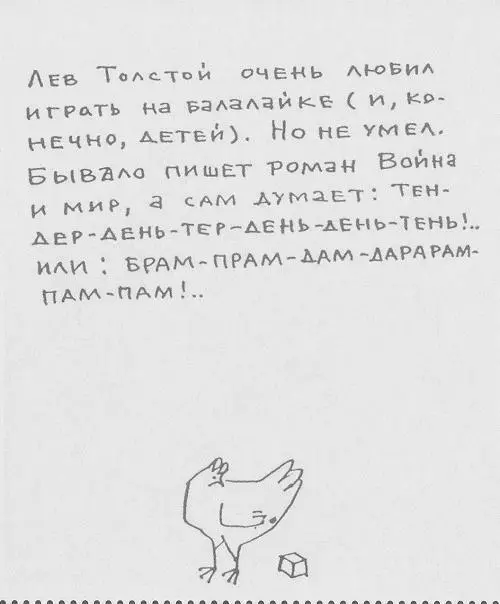 Лев Толстой очень любил
играть на балалайке (и, ко-
нечно, детей). Но не умел.
Бывало пишет роман Война
и мир, а сам думает: тен-
дер-день-тер-день-день-тень!..
или: брам-прам-дам-дарарам-
пам-пам!..